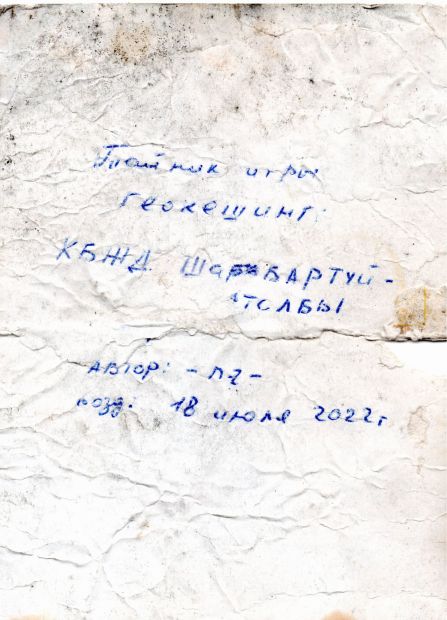 Тайник игры
геокешинг:
КБЖД ШАРАБАРТУЙ-
ТОЛБЫ
АВТОР: -П2-
созд: 18 июля 2022г